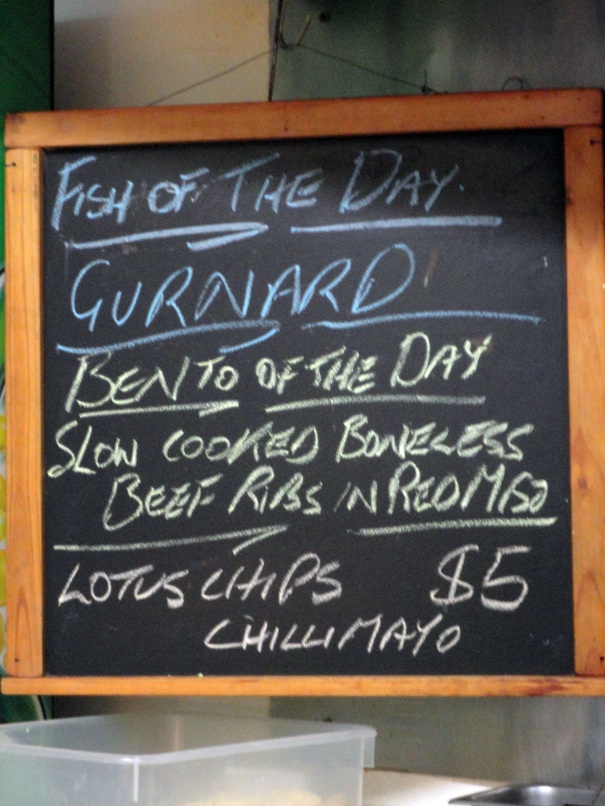 FISH OF THE DAY.
GURNARD
BENTO OF THE DAY
SLOW COOKED BONELESS
BEEF RIBS IN RED MISO
LOTUS CHIPS $5
CHILLI MAYO